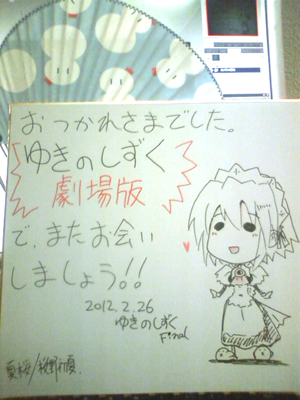 おつかれさまでした。
ゆきのしずく
劇場版
で、またお会い
しましょう!!
2012.2.26
ゆきのしずく
Final